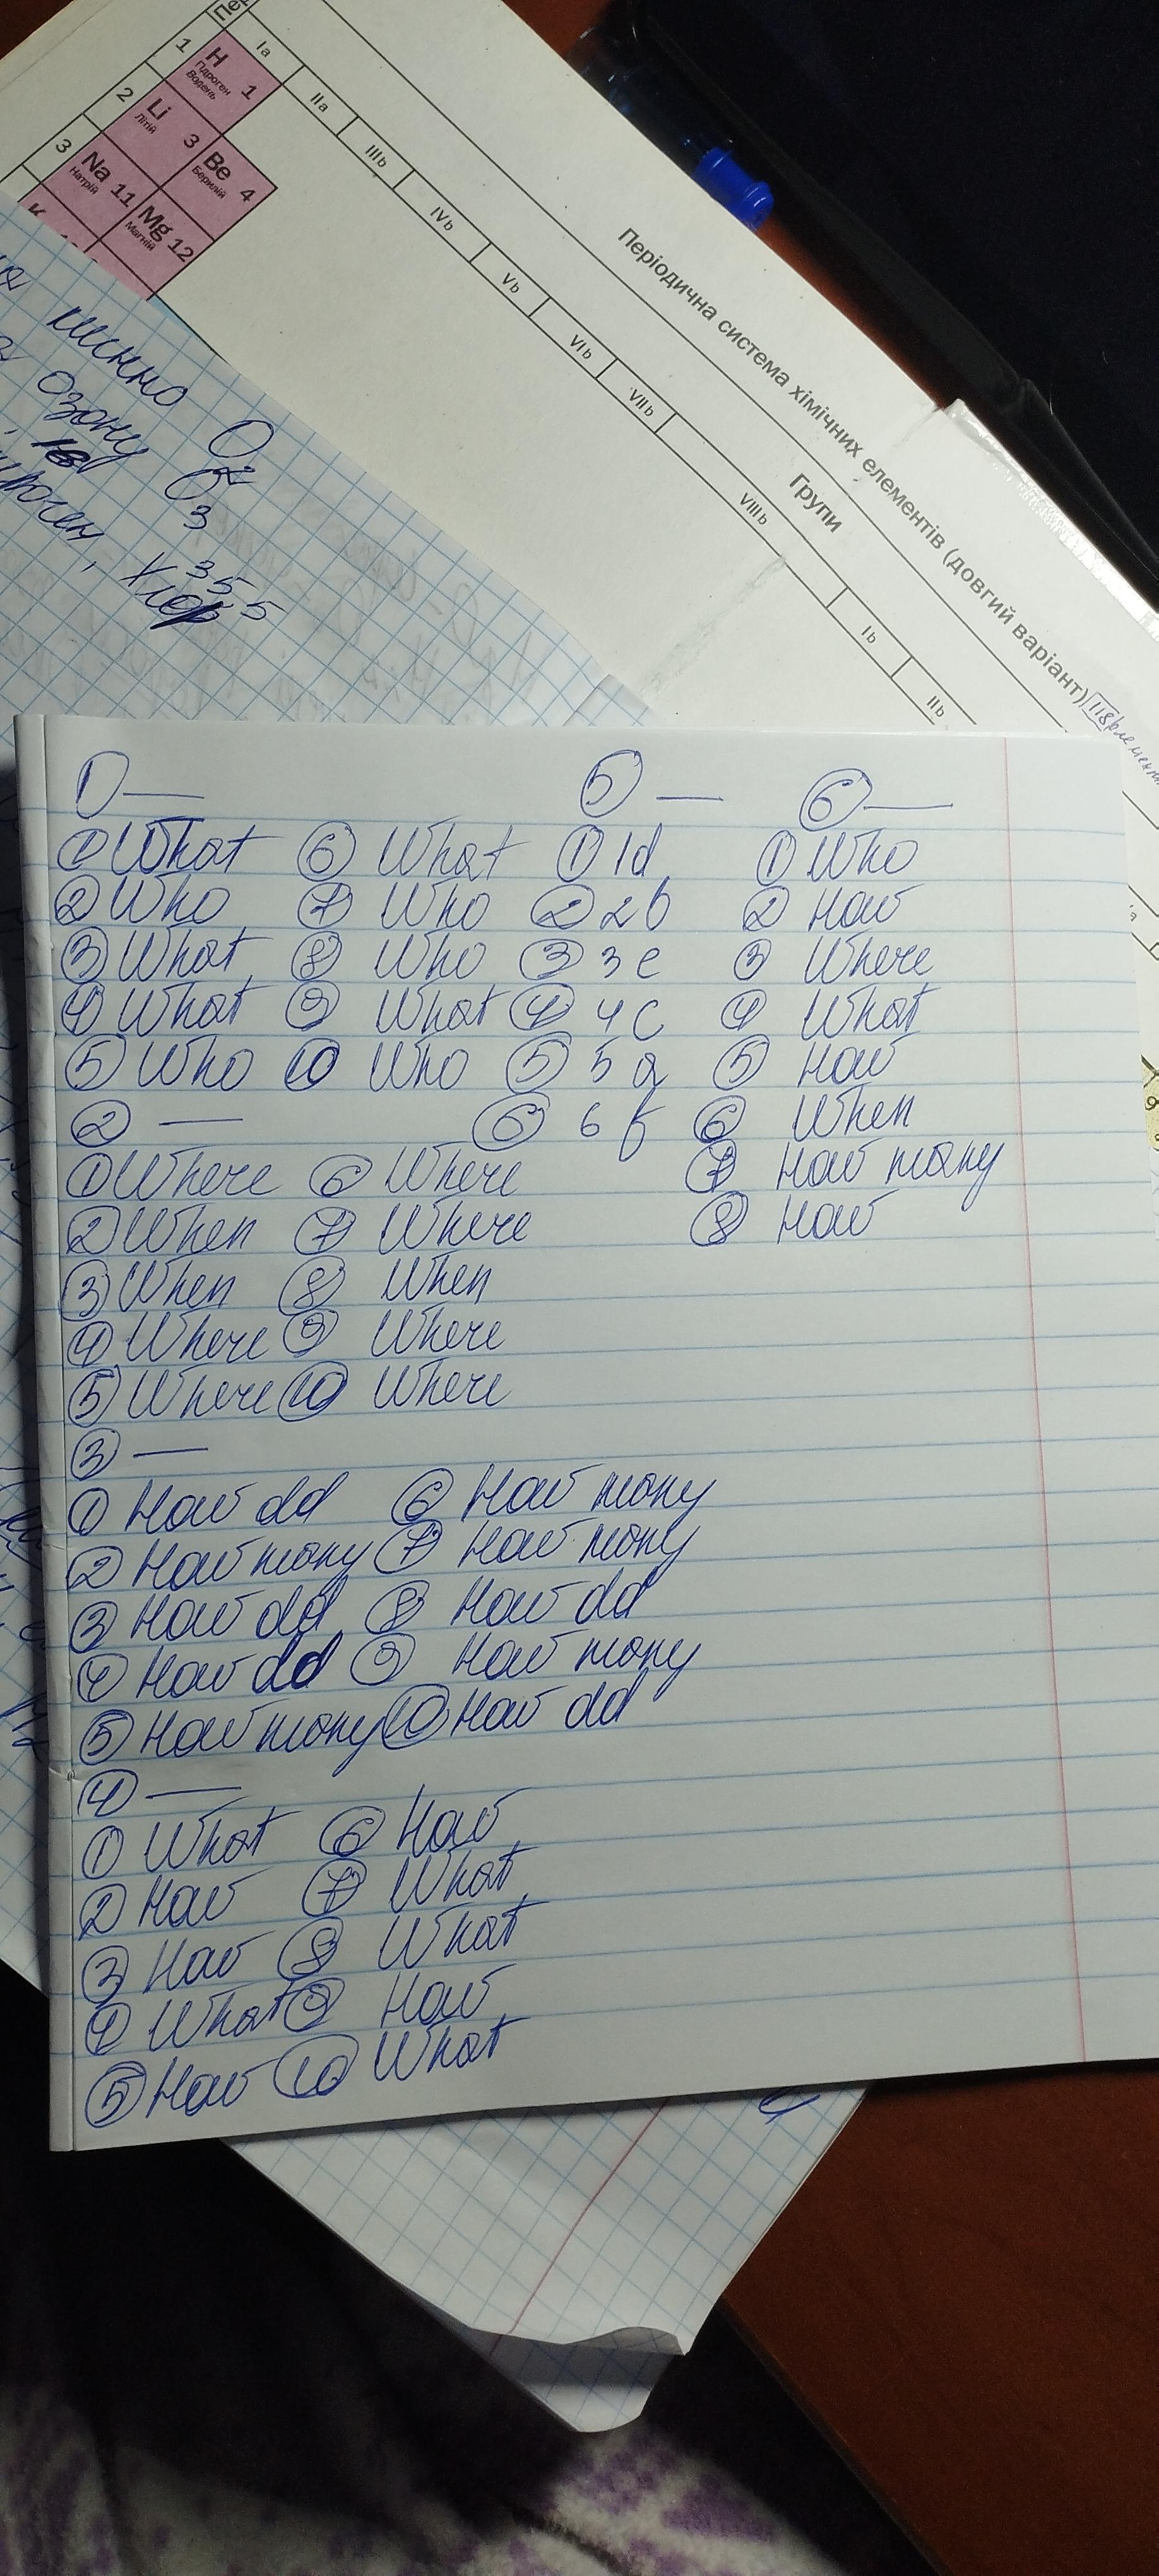 Пер
1 H 1 Ia
Гідроген
Водень
2 Li 3 IIa
Літій
Be 4
Берилій
3 Na 11
Натрій
Mg 12
Магній
K
IIIb IVb Vb VIb VIIb VIIIb Ib IIb
Періодична система хімічних елементів (довгий варіант) 118
Групи
O2
озону O3
35,5
Хлор
1 —
1 What 6 What
2 Who 7 Who
3 What 8 Who
4 What 9 What
5 Who 10 Who
2 —
1 Where 6 Where
2 When 7 Where
3 When 8 When
4 Where 9 Where
5 Where 10 Where
3 —
1 How dd 6 How many
2 How many 7 How many
3 How dd 8 How dd
4 How dd 9 How many
5 How many 10 How dd
4 —
1 What 6 How
2 How 7 What
3 How 8 What
4 What 9 How
5 How 10 What
5 —
1 1d
2 2b
3 3e
4 4c
5 5a
6 6f
6 —
1 Who
2 How
3 Where
4 What
5 How
6 When
7 How many
8 How